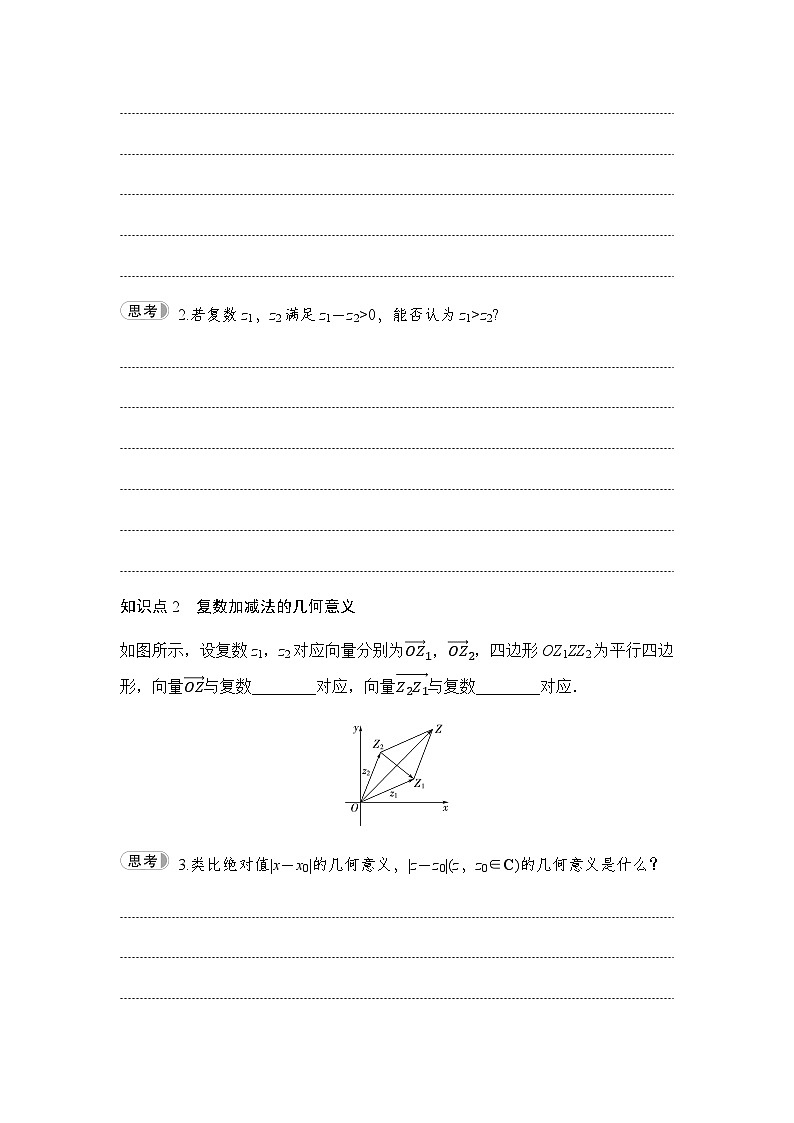 思考 2.若复数z₁，z₂满足z₁－z₂>0，能否认为z₁>z₂?
知识点2　复数加减法的几何意义
如图所示，设复数z₁，z₂对应向量分别为\overrightarrow{OZ}₁，\overrightarrow{OZ}₂，四边形OZ₁ZZ₂为平行四边
形，向量\overrightarrow{OZ}与复数________对应，向量\overrightarrow{Z₂Z₁}与复数________对应.
y
Z
Z₂
z₂
Z₁
z₁
O
x
思考 3.类比绝对值|x－x₀|的几何意义，|z－z₀|(z，z₀∈C)的几何意义是什么？